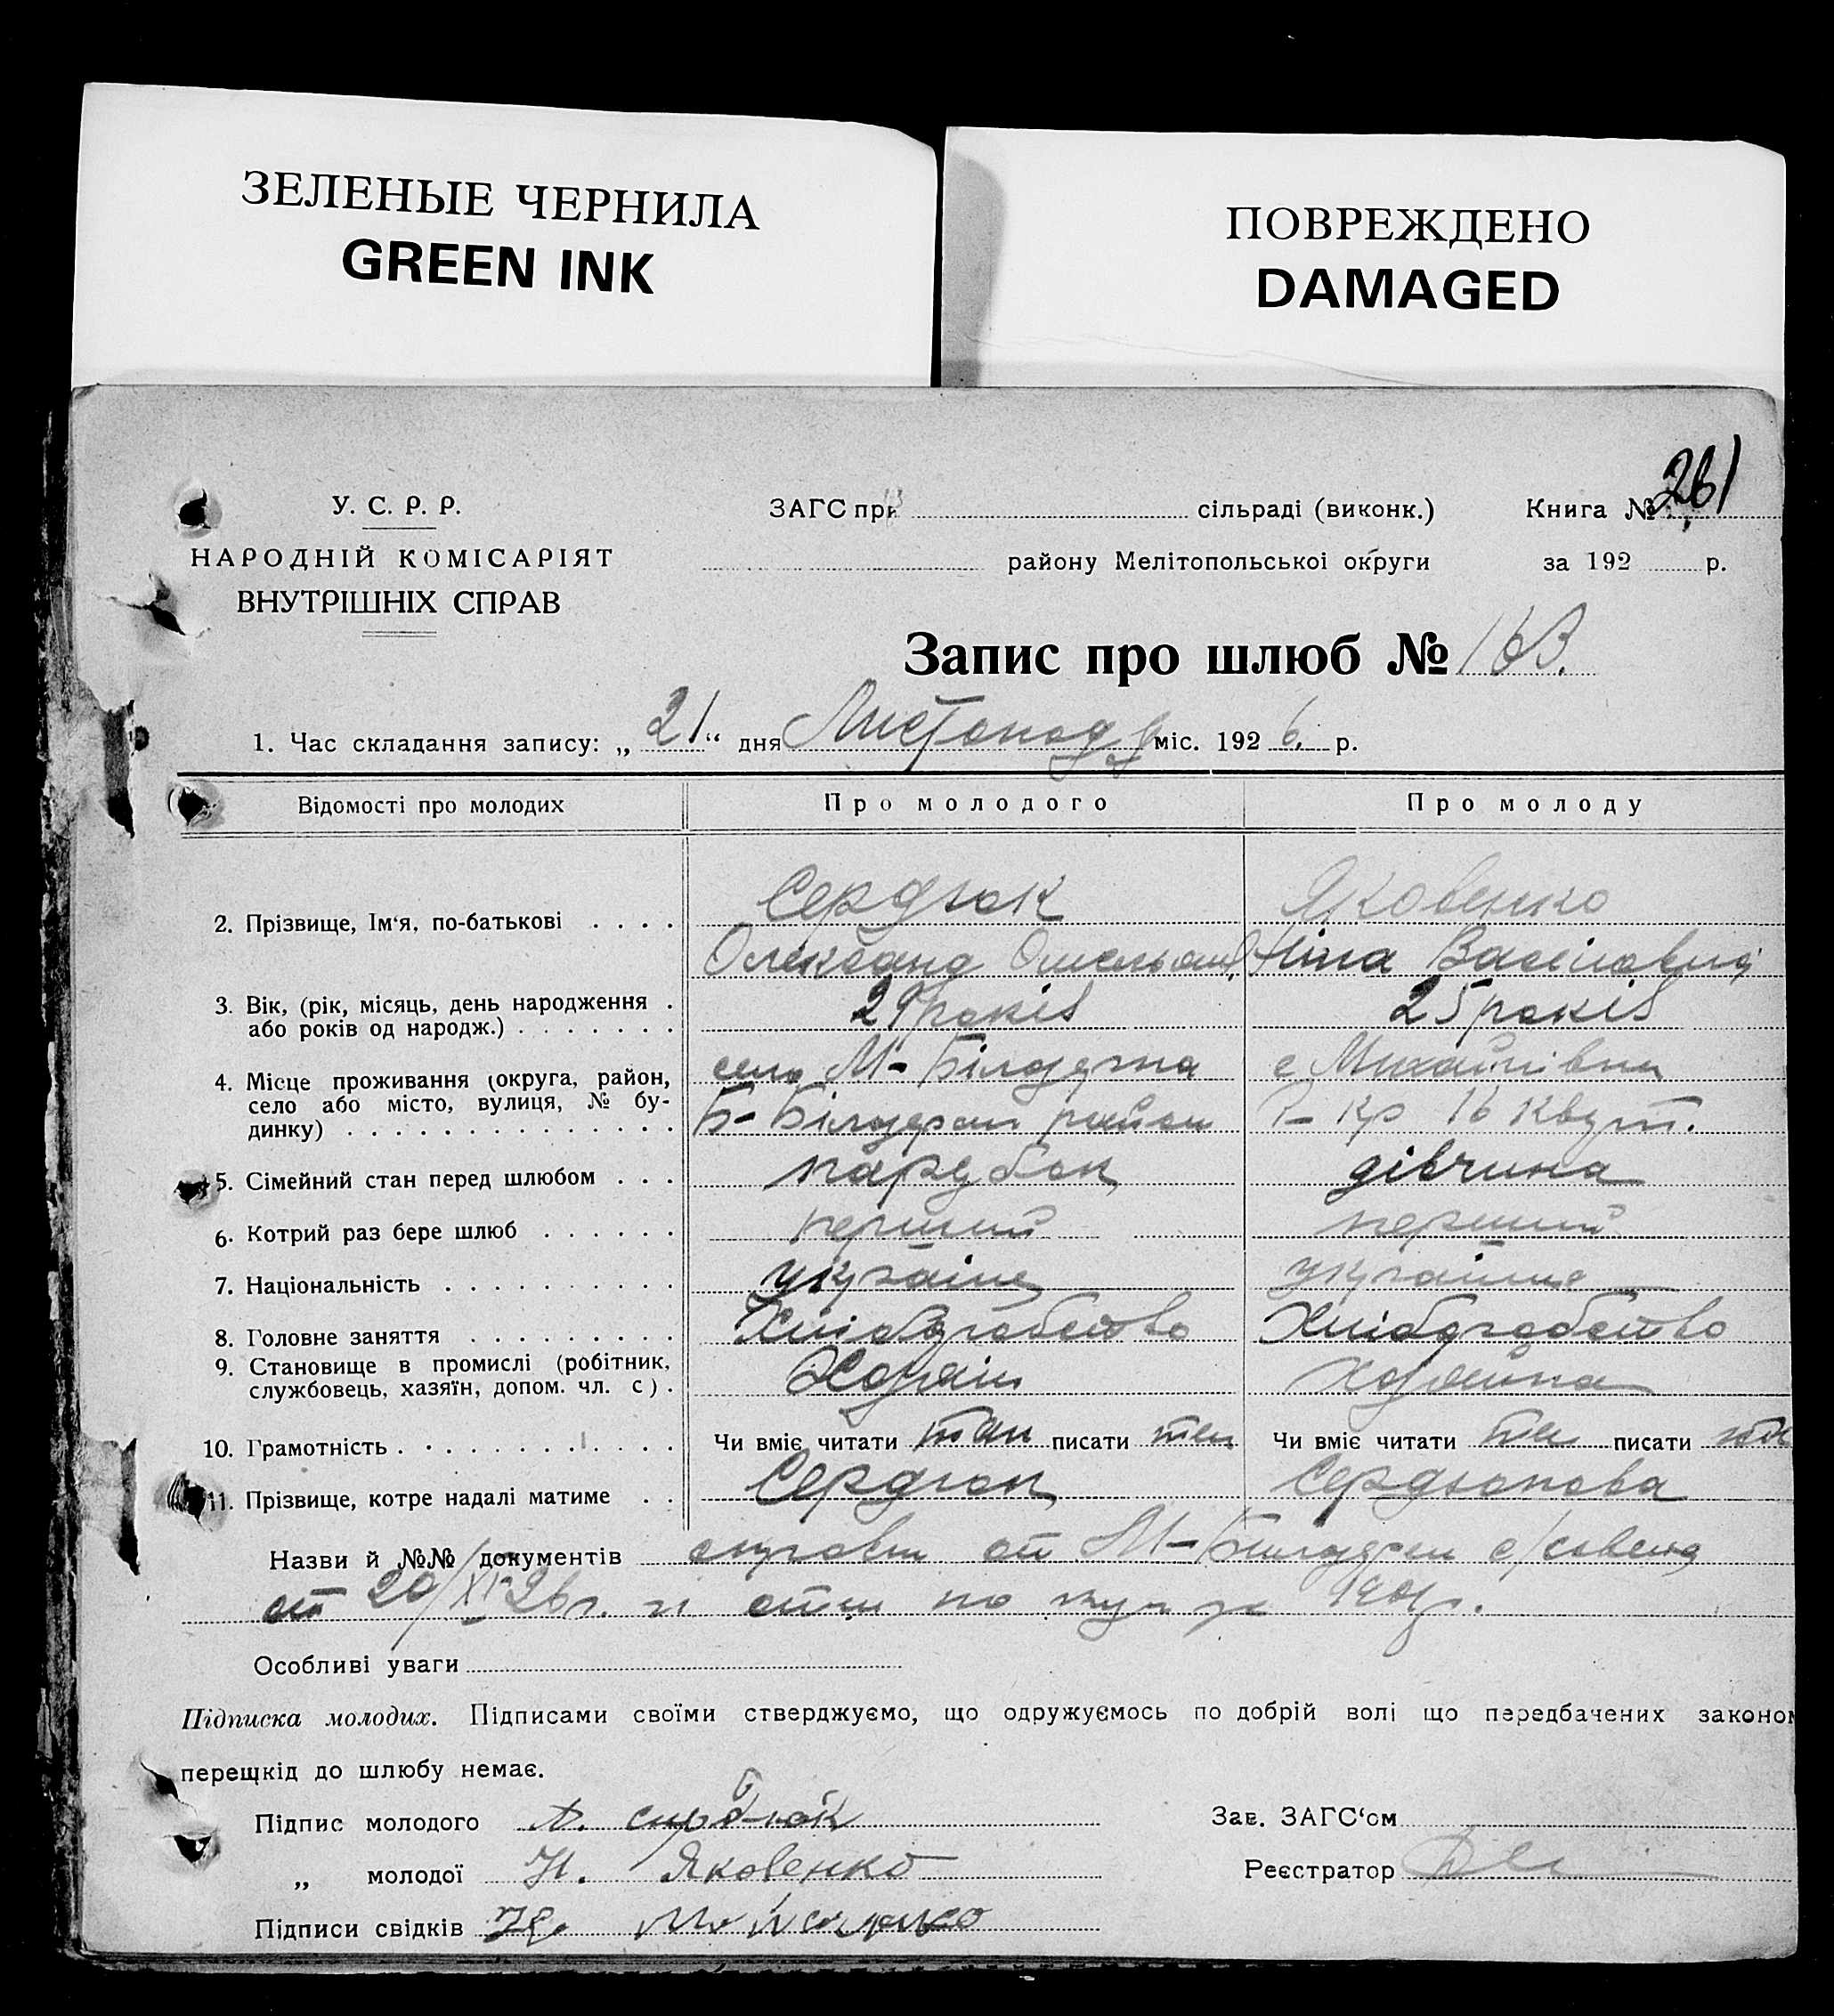 ЗЕЛЕНЫЕ ЧЕРНИЛА
GREEN INK
ПОВРЕЖДЕНО
DAMAGED
261
У. С. Р. Р. ЗАГС при сільраді (виконк.) Книга №
НАРОДНІЙ КОМІСАРІЯТ району Мелітопольської округи за 192 р.
ВНУТРІШНІХ СПРАВ
Запис про шлюб № 163.
1. Час складання запису: „ 21 “ дня Листопаду міс. 192 6. р.
Відомості про молодих Про молодого Про молоду
Сердюк Яковенко
2. Прізвище, Ім‘я, по-батькові
Олександ Омельян Ніна Василовна
3. Вік, (рік, місяць, день народження 29 років 25 років
або років од народж.)
село М-Білозерка с Михайлівка
4. Місце проживання (округа, район,
село або місто, вулиця, № бу- Б-Білозерськ район Р- кр 16 кварт.
динку)
5. Сімейний стан перед шлюбом парубок дівчина
6. Котрий раз бере шлюб перший перший
7. Національність українец українка
8. Головне заняття Хліборобство Хліборобство
9. Становище в промислі (робітник,
службовець, хазяїн, допом. чл. с). Хозяін хозяйка
10. Грамотність Чи вміє читати так писати так Чи вміє читати так писати так
11. Прізвище, котре надалі матиме Сердюк Сердюкова
Назви й №№ документів справки от М-Білозерск с/совета
от 20/XI-26 г. и 1901 г.
Особливі уваги
Підписка молодих. Підписами своїми стверджуємо, що одружуємось по добрій волі що передбачених законом
перещкід до шлюбу немає.
Підпис молодого А. сирдюк Зав. ЗАГС‘ом
„ молодої Н. Яковенко Реєстратор
Підписи свідків